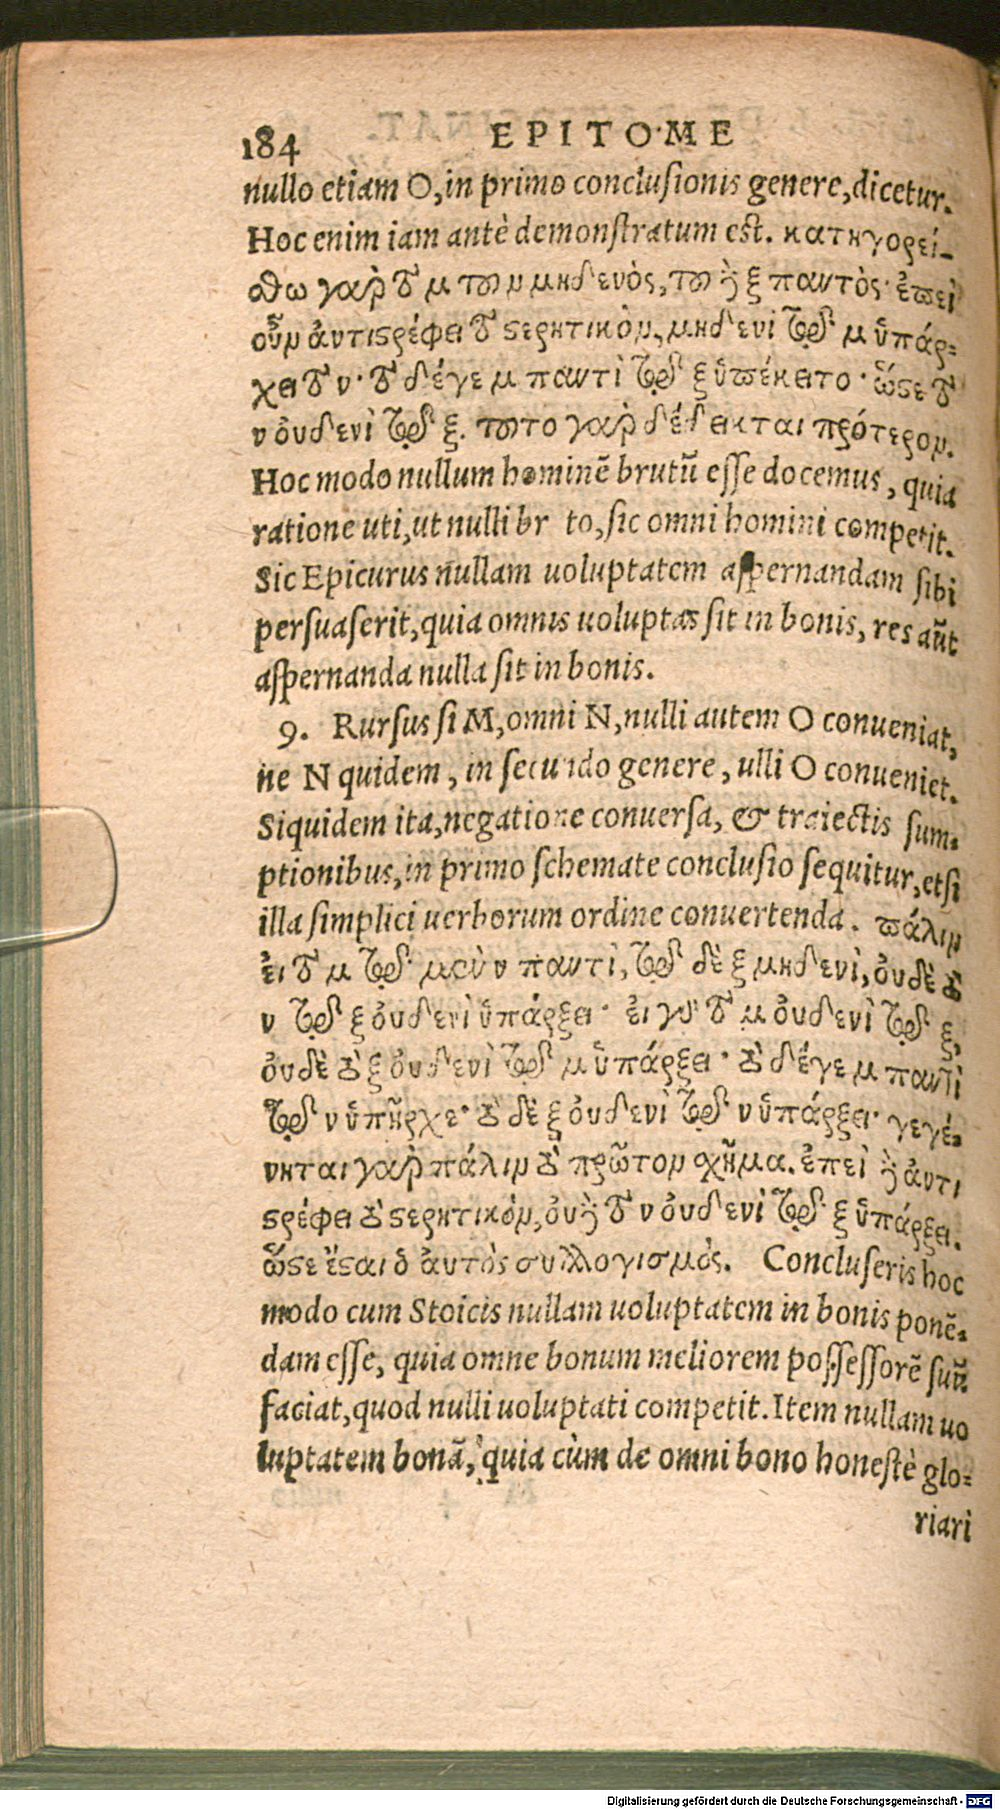 184 EPITOME
nullo etiam O, in primo conclusionis genere, dicetur.
Hoc enim iam antè demonstratum est. κατηγορεί-
σθω γὰρ τὸ μ τοῦ ν μηδενὸς, τοῦ δὲ ξ παντὸς· ἐπεὶ
οὖν ἀντιστρέφει τὸ στερητικὸν, μηδενὶ τῷ μ ὑπάρ-
χει τὸ ν· τὸ δέγε μ παντὶ τῷ ξ ὑπέκειτο· ὥστε τὸ
ν οὐδενὶ τῷ ξ. τοῦτο γὰρ δέδεικται πρότερον.
Hoc modo nullum hominē brutū esse docemus, quia
ratione uti, ut nulli br to, sic omni homini competit.
Sic Epicurus nullam uoluptatem aspernandam sibi
persuaserit, quia omnis uoluptas sit in bonis, res aūt
aspernanda nulla sit in bonis.
9. Rursus si M, omni N, nulli autem O conueniat,
ne N quidem, in secundo genere, ulli O conueniet.
Siquidem ita, negatione conuersa, & traiectis sum-
ptionibus, in primo schemate conclusio sequitur, etsi
illa simplici uerborum ordine conuertenda. πάλιν
εἰ τὸ μ τῷ μὲν ν παντὶ, τῷ δὲ ξ μηδενὶ, οὐδὲ τὸ
ν τῷ ξ οὐδενὶ ὑπάρξει· εἰ γὰρ τὸ μ οὐδενὶ τῷ ξ,
οὐδὲ τὸ ξ οὐδενὶ τῷ μ ὑπάρξει· τὸ δέγε μ παντὶ
τῷ ν ὑπῆρχε· τὸ δὲ ξ οὐδενὶ τῷ ν ὑπάρξει· γεγέ-
νηται γὰρ πάλιν τὸ πρῶτον σχῆμα. ἐπεὶ δὲ ἀντι
στρέφει τὸ στερητικὸν, οὐδὲ τὸ ν οὐδενὶ τῷ ξ ὑπάρξει.
ὥστε ἔσται ὁ αὐτὸς συλλογισμός. Concluseris hoc
modo cum Stoicis nullam uoluptatem in bonis ponē-
dam esse, quia omne bonum meliorem possessorē suū
faciat, quod nulli uoluptati competit. Item nullam uo
luptatem bonā, quia cùm de omni bono honestè glo-
riari
Digitalisierung gefördert durch die Deutsche Forschungsgemeinschaft - DFG